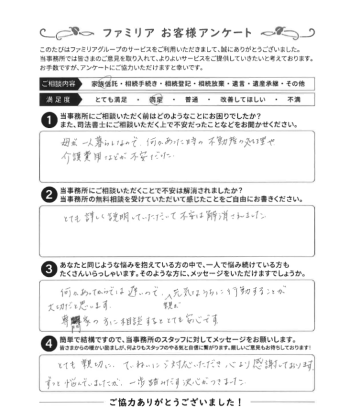 ファミリア お客様アンケート
このたびはファミリアグループのサービスをご利用いただきまして、誠にありがとうございました。
当事務所では皆さまのご意見を取り入れて、よりよいサービスをご提供していきたいと考えております。
お手数ですが、アンケートにご協力いただけますと幸いです。
ご相談内容 家族信託・相続手続き・相続登記・相続放棄・遺言・遺産承継・その他
満足度 とても満足 ・ 満足 ・ 普通 ・ 改善してほしい ・ 不満
1 当事務所にご相談いただく前はどのようなことにお困りでしたか？
また、司法書士にご相談いただく上で不安だったことなどをお聞かせください。
母が一人暮らしなので、何かあった時の不動産の処理や
介護費用などが不安だった
2 当事務所にご相談いただくことで不安は解消されましたか？
当事務所の無料相談を受けていただいて感じたことをご自由にお書きください。
とても詳しく説明していただいて不安は解消されました
3 あなたと同じような悩みを抱えている方の中で、一人で悩み続けている方も
たくさんいらっしゃいます。そのような方に、メッセージをいただけますでしょうか。
何かあってからでは遅いので、元気なうちに行動することが
親が
大切だと思います。
専門家の方に相談するととても安心です
4 簡単で結構ですので、当事務所のスタッフに対してメッセージをお願いします。
皆さまからの暖かい励ましが、何よりもスタッフのやる気とお客様に繋がります。厳しいご意見もお待ちしております！
とても親切に、ていねいに対応いただき心より感謝しております。
ずっと悩んでいましたが、一歩踏みだす決心がつきました
ご協力ありがとうございました！